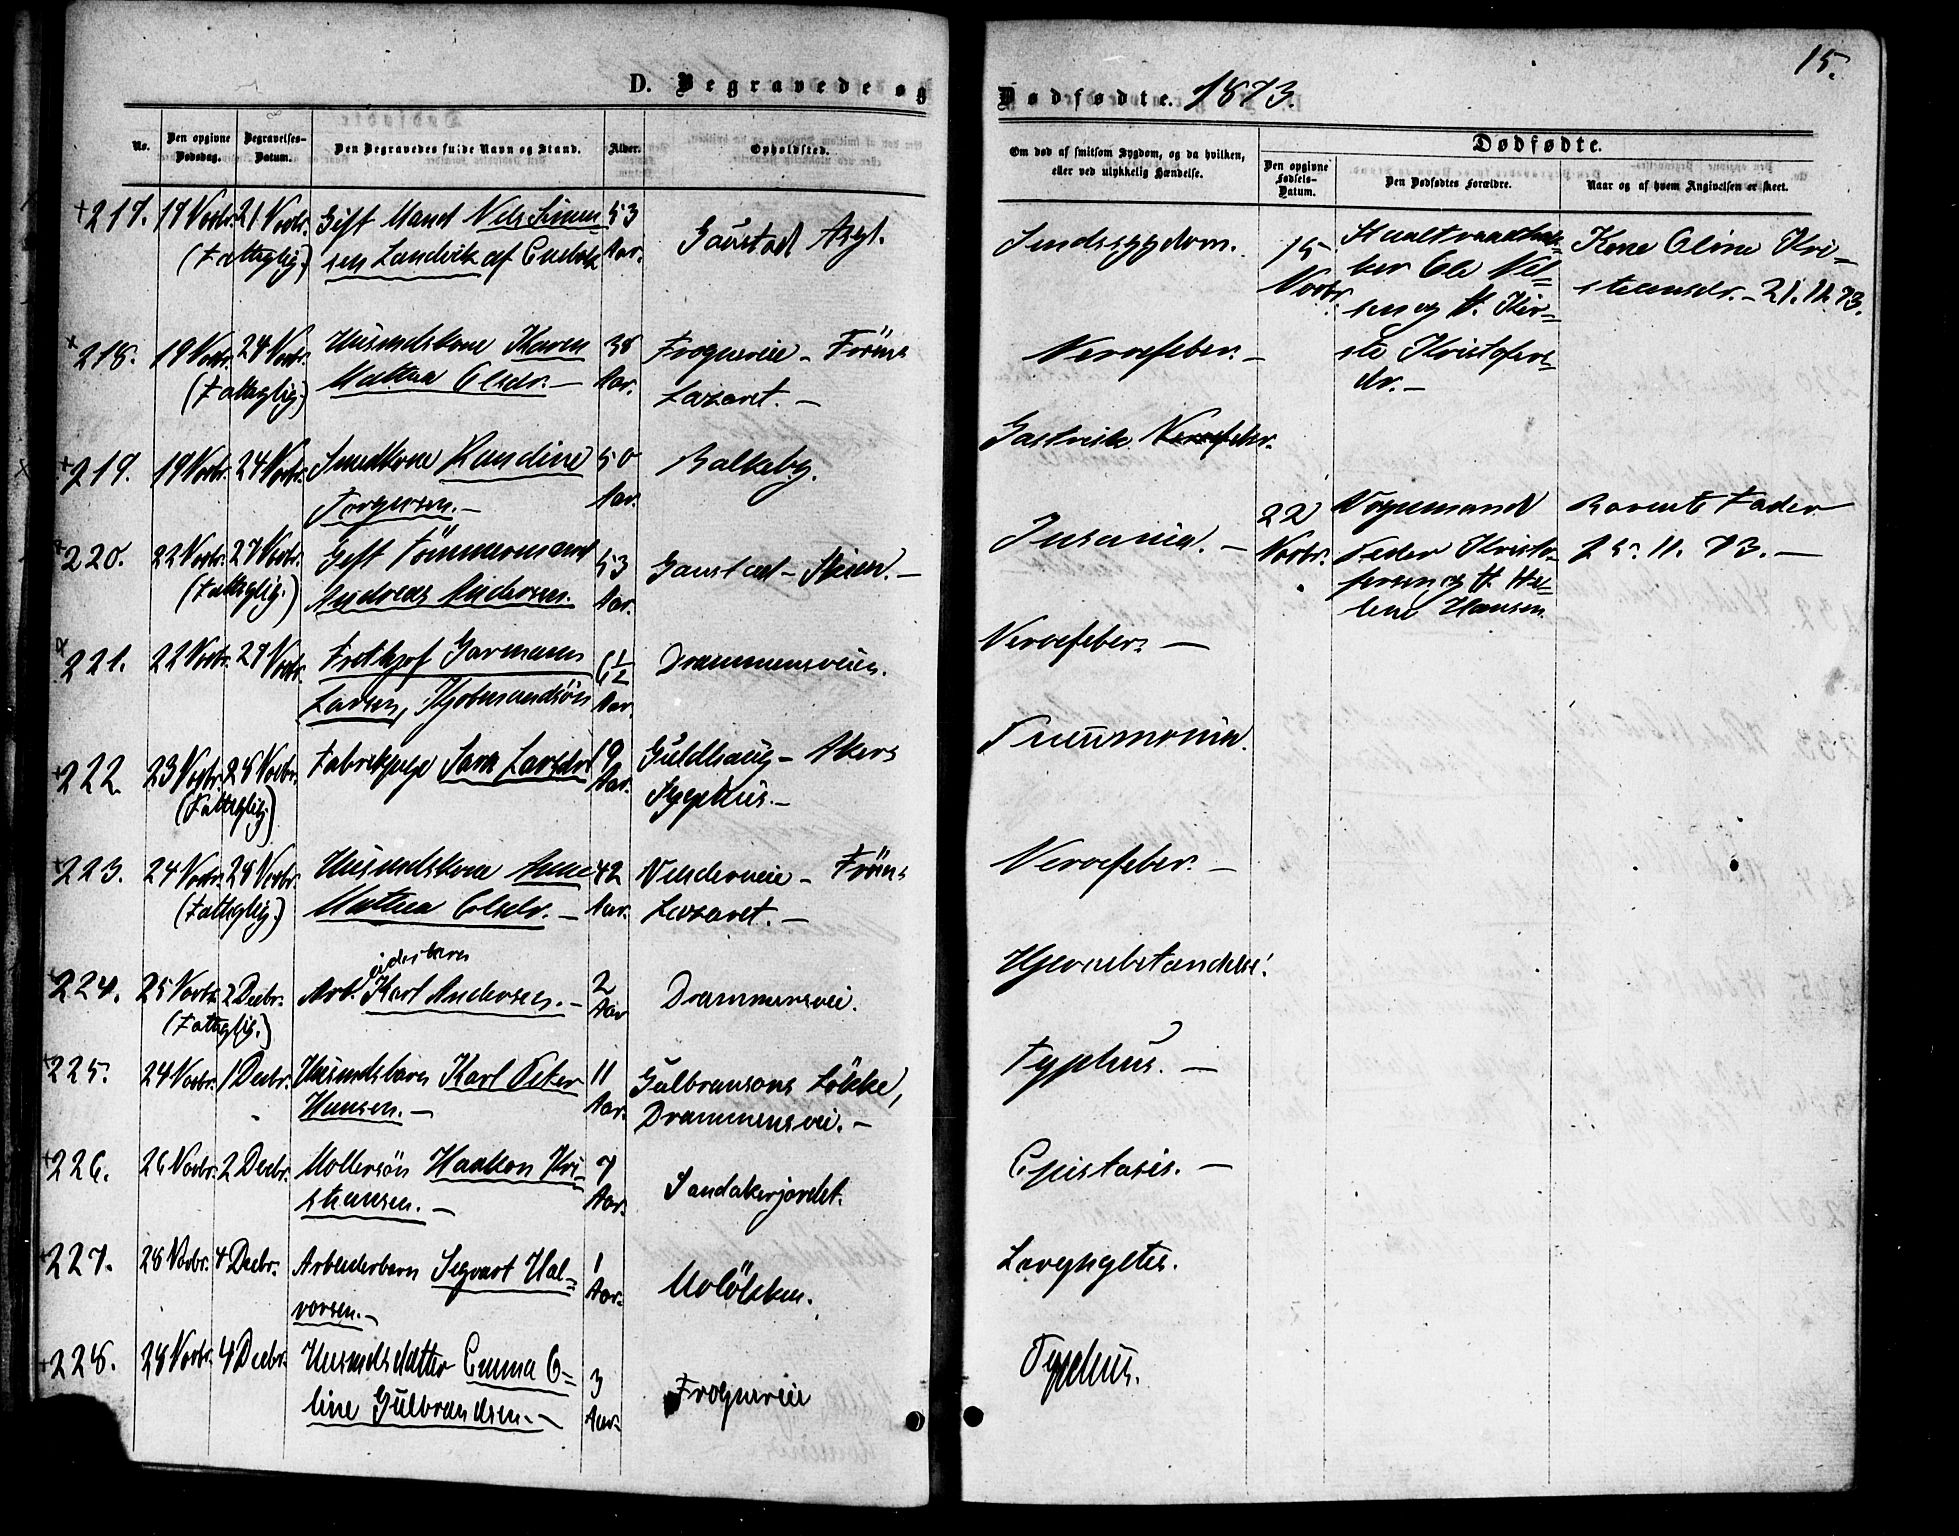 15.
D. Begravede og Dødfødte. 1873.
No.
Den opgivne Dødsdag.
Begravelses-Datum.
Den Begravedes fulde Navn og Stand.
Alder.
Opholdsted.
Om død af smitsom Sygdom, og da hvilken, eller ved ulykkelig Hændelse.
Dødfødte.
Den opgivne Fødsels-Datum.
Den Dødfødtes Forældre.
Naar og af hvem Angivelsen er skeet.
217. 17 Novbr. 21 Novbr. Gift Mand Nels Simen= 53 Gaustad Asyl. Sindssygdom.
(Fattiglig.) sen Landvik af Aar.
15 Novbr.
ker Ole Nel=
sen og H. Kir=
ste Kristofers
dr. –
Kone Oline Kri=
stiansdr. – 21.11.73.
218. 19 Novbr. 24 Novbr. Husmdskone Karen 38 Frognerveie – Fröens Nervefeber. –
(Fattiglig.) Mathea Olsdr. – Aar. Lazaret. –
219. 19 Novbr. 24 Novbr. Smedkone Randine 50 Balkeby. Gastrisk Nervefeber.
Torgersen. – Aar.
220. 22 Novbr. 27 Novbr. Gift Tömmermand 53 Gaustad – Skien. – Insania. –
(Fattiglig.) Andreas Andersen. Aar.
22 Novbr.
Vognmand
Peder Kristo=
fersen og H. He=
lene Hansen
Barnets Fader
25. 11. 73. –
221. 22 Novbr. 27 Novbr. Frithjof Garmann 6½ Drammensveien. Nervefeber. –
Larsen, Kjöbmandsön Aar.
222. 23 Novbr. 28 Novbr. Fabrikpige Sara Larsdr. 19 Guldhaug – Akers Pneumonia.
(Fattiglig.) Aar. Sygehus. –
223. 24 Novbr. 28 Novbr. Husmdskone Anne 42 – Fröens Nervefeber. –
(Fattiglig.) Mathea Olsdr. – Aar. Lazaret. –
224. 25 Novbr. 2 Decbr. Arb.eiderbarn Karl Andersen. – 2 Drammensvei. Hjernebetændelse.
(Fattiglig.) Aar
225. 24 Novbr. 1 Decbr. Husmdsbarn Karl Peter 11 Gulbransons Lökke, Typhus. –
Hansen. – Aar. Drammensvei. –
226. 26 Novbr. 2 Decbr. Mollersön Haakon Kri= 7 Sandakerjordet. Epistaxis. –
stiansen. – Aar.
227. 28 Novbr. 4 Decbr. Arbeiderbarn Sigvart Hal= 1 Molökken. Laryngitis.
vorsen. – Aar.
228. 28 Novbr. 4 Decbr. Husmds Datter Emma O= 3 Frognerveie Typhus.
line Gulbrandsen. – Aar.